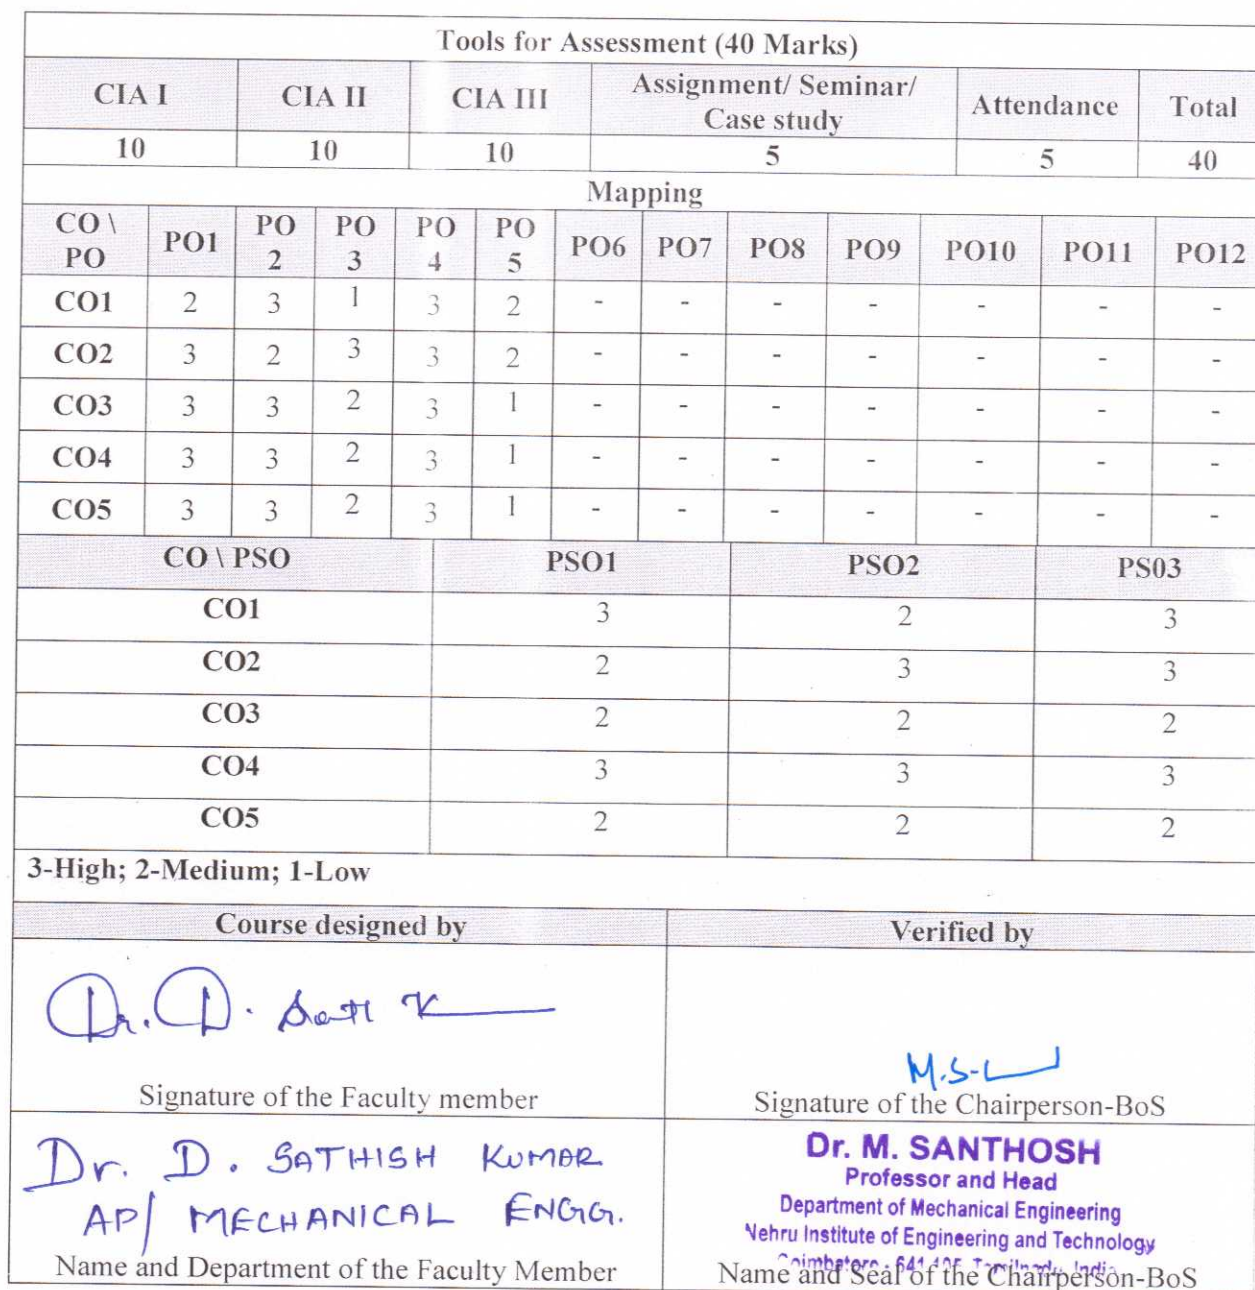 Tools for Assessment (40 Marks)
CIA I CIA II CIA III Assignment/ Seminar/ Case study Attendance Total
10 10 10 5 5 40
Mapping
CO \ PO PO1 PO 2 PO 3 PO 4 PO 5 PO6 PO7 PO8 PO9 PO10 PO11 PO12
CO1 2 3 1 3 2 - - - - - - -
CO2 3 2 3 3 2 - - - - - - -
CO3 3 3 2 3 1 - - - - - - -
CO4 3 3 2 3 1 - - - - - - -
CO5 3 3 2 3 1 - - - - - - -
CO \ PSO PSO1 PSO2 PS03
CO1 3 2 3
CO2 2 3 3
CO3 2 2 2
CO4 3 3 3
CO5 2 2 2
3-High; 2-Medium; 1-Low
Course designed by Verified by
Dr. D.
M.S-
Signature of the Faculty member Signature of the Chairperson-BoS
Dr. D. SATHISH KUMAR
AP/ MECHANICAL ENGG.
Name and Department of the Faculty Member
Dr. M. SANTHOSH
Professor and Head
Department of Mechanical Engineering
Nehru Institute of Engineering and Technology
Coimbatore - 641 105 Tamilnadu, India
Name and Seal of the Chairperson-BoS